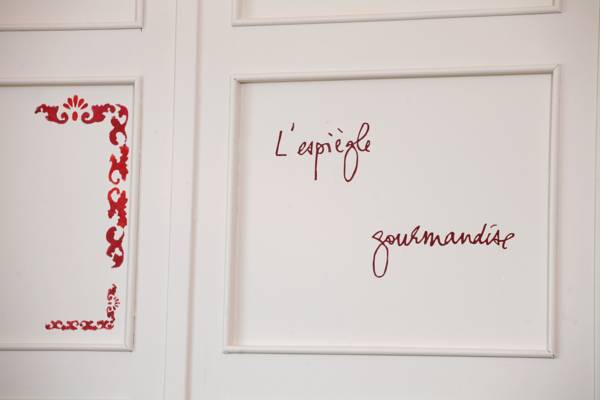 L'espiègle
gourmandise